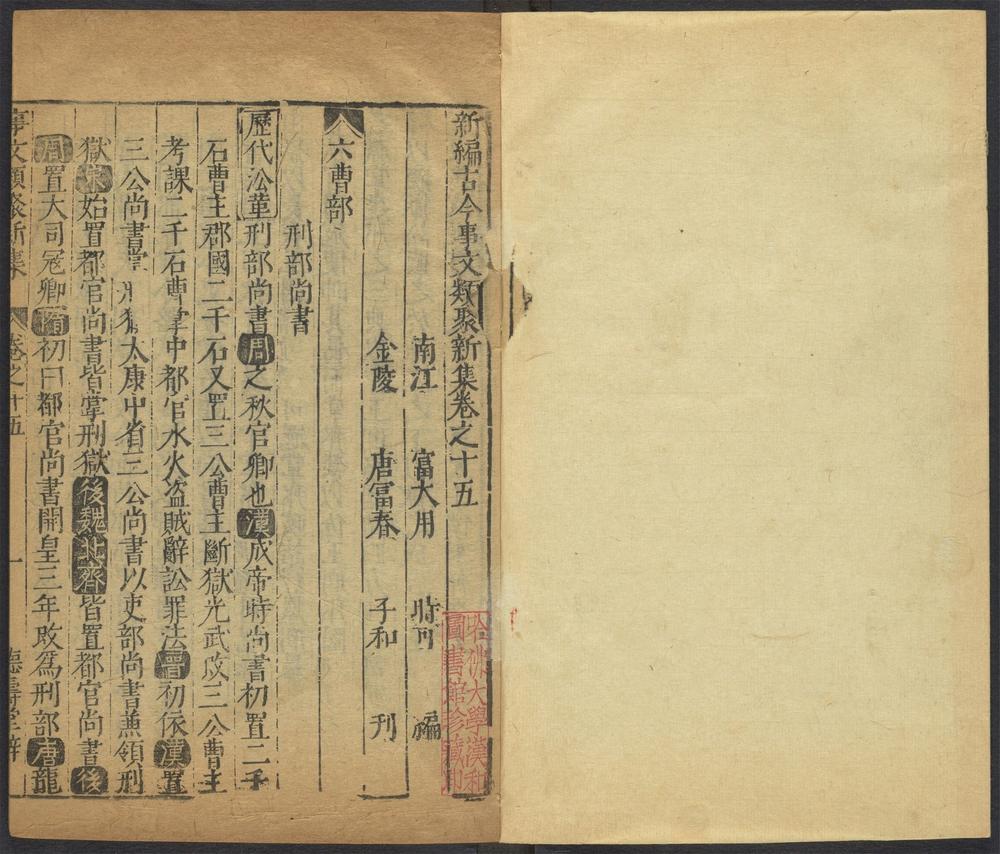 新編古今事文類聚新集卷之十五
南江 富大用 時可 編
金陵 唐富春 子和 刊
六曹部
刑部尚書
歷代沿革刑部尚書周之秋官卿也漢成帝時尚書初置二千
石曹主郡國二千石又置三公曹主斷獄光武改三公曹主
考課二千石曹掌中都官水火盜賊辭訟罪法晉初依漢置
三公尚書掌刑獄太康中省三公尚書以吏部尚書兼領刑
獄宋始置都官尚書皆掌刑獄後魏北齊皆置都官尚書後
周置大司寇卿隋初曰都官尚書開皇三年改爲刑部唐龍
事文類聚新集 卷之十五 一 德壽堂梓
哈佛大學漢和
圖書館珍藏印